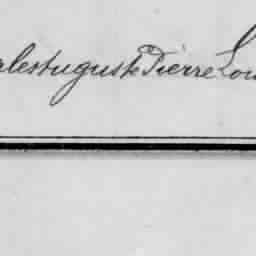 rles Auguste Pierre Lou